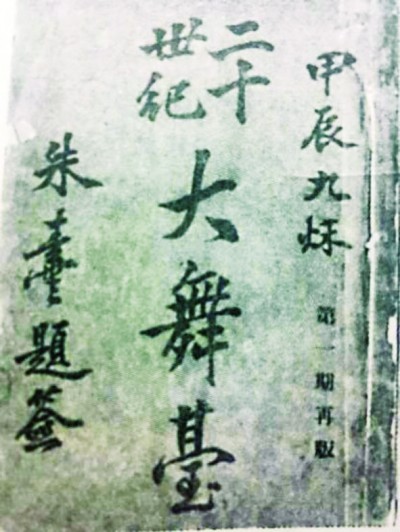 甲辰九秌
第一期再版
二十世紀
大舞臺
朱題簽